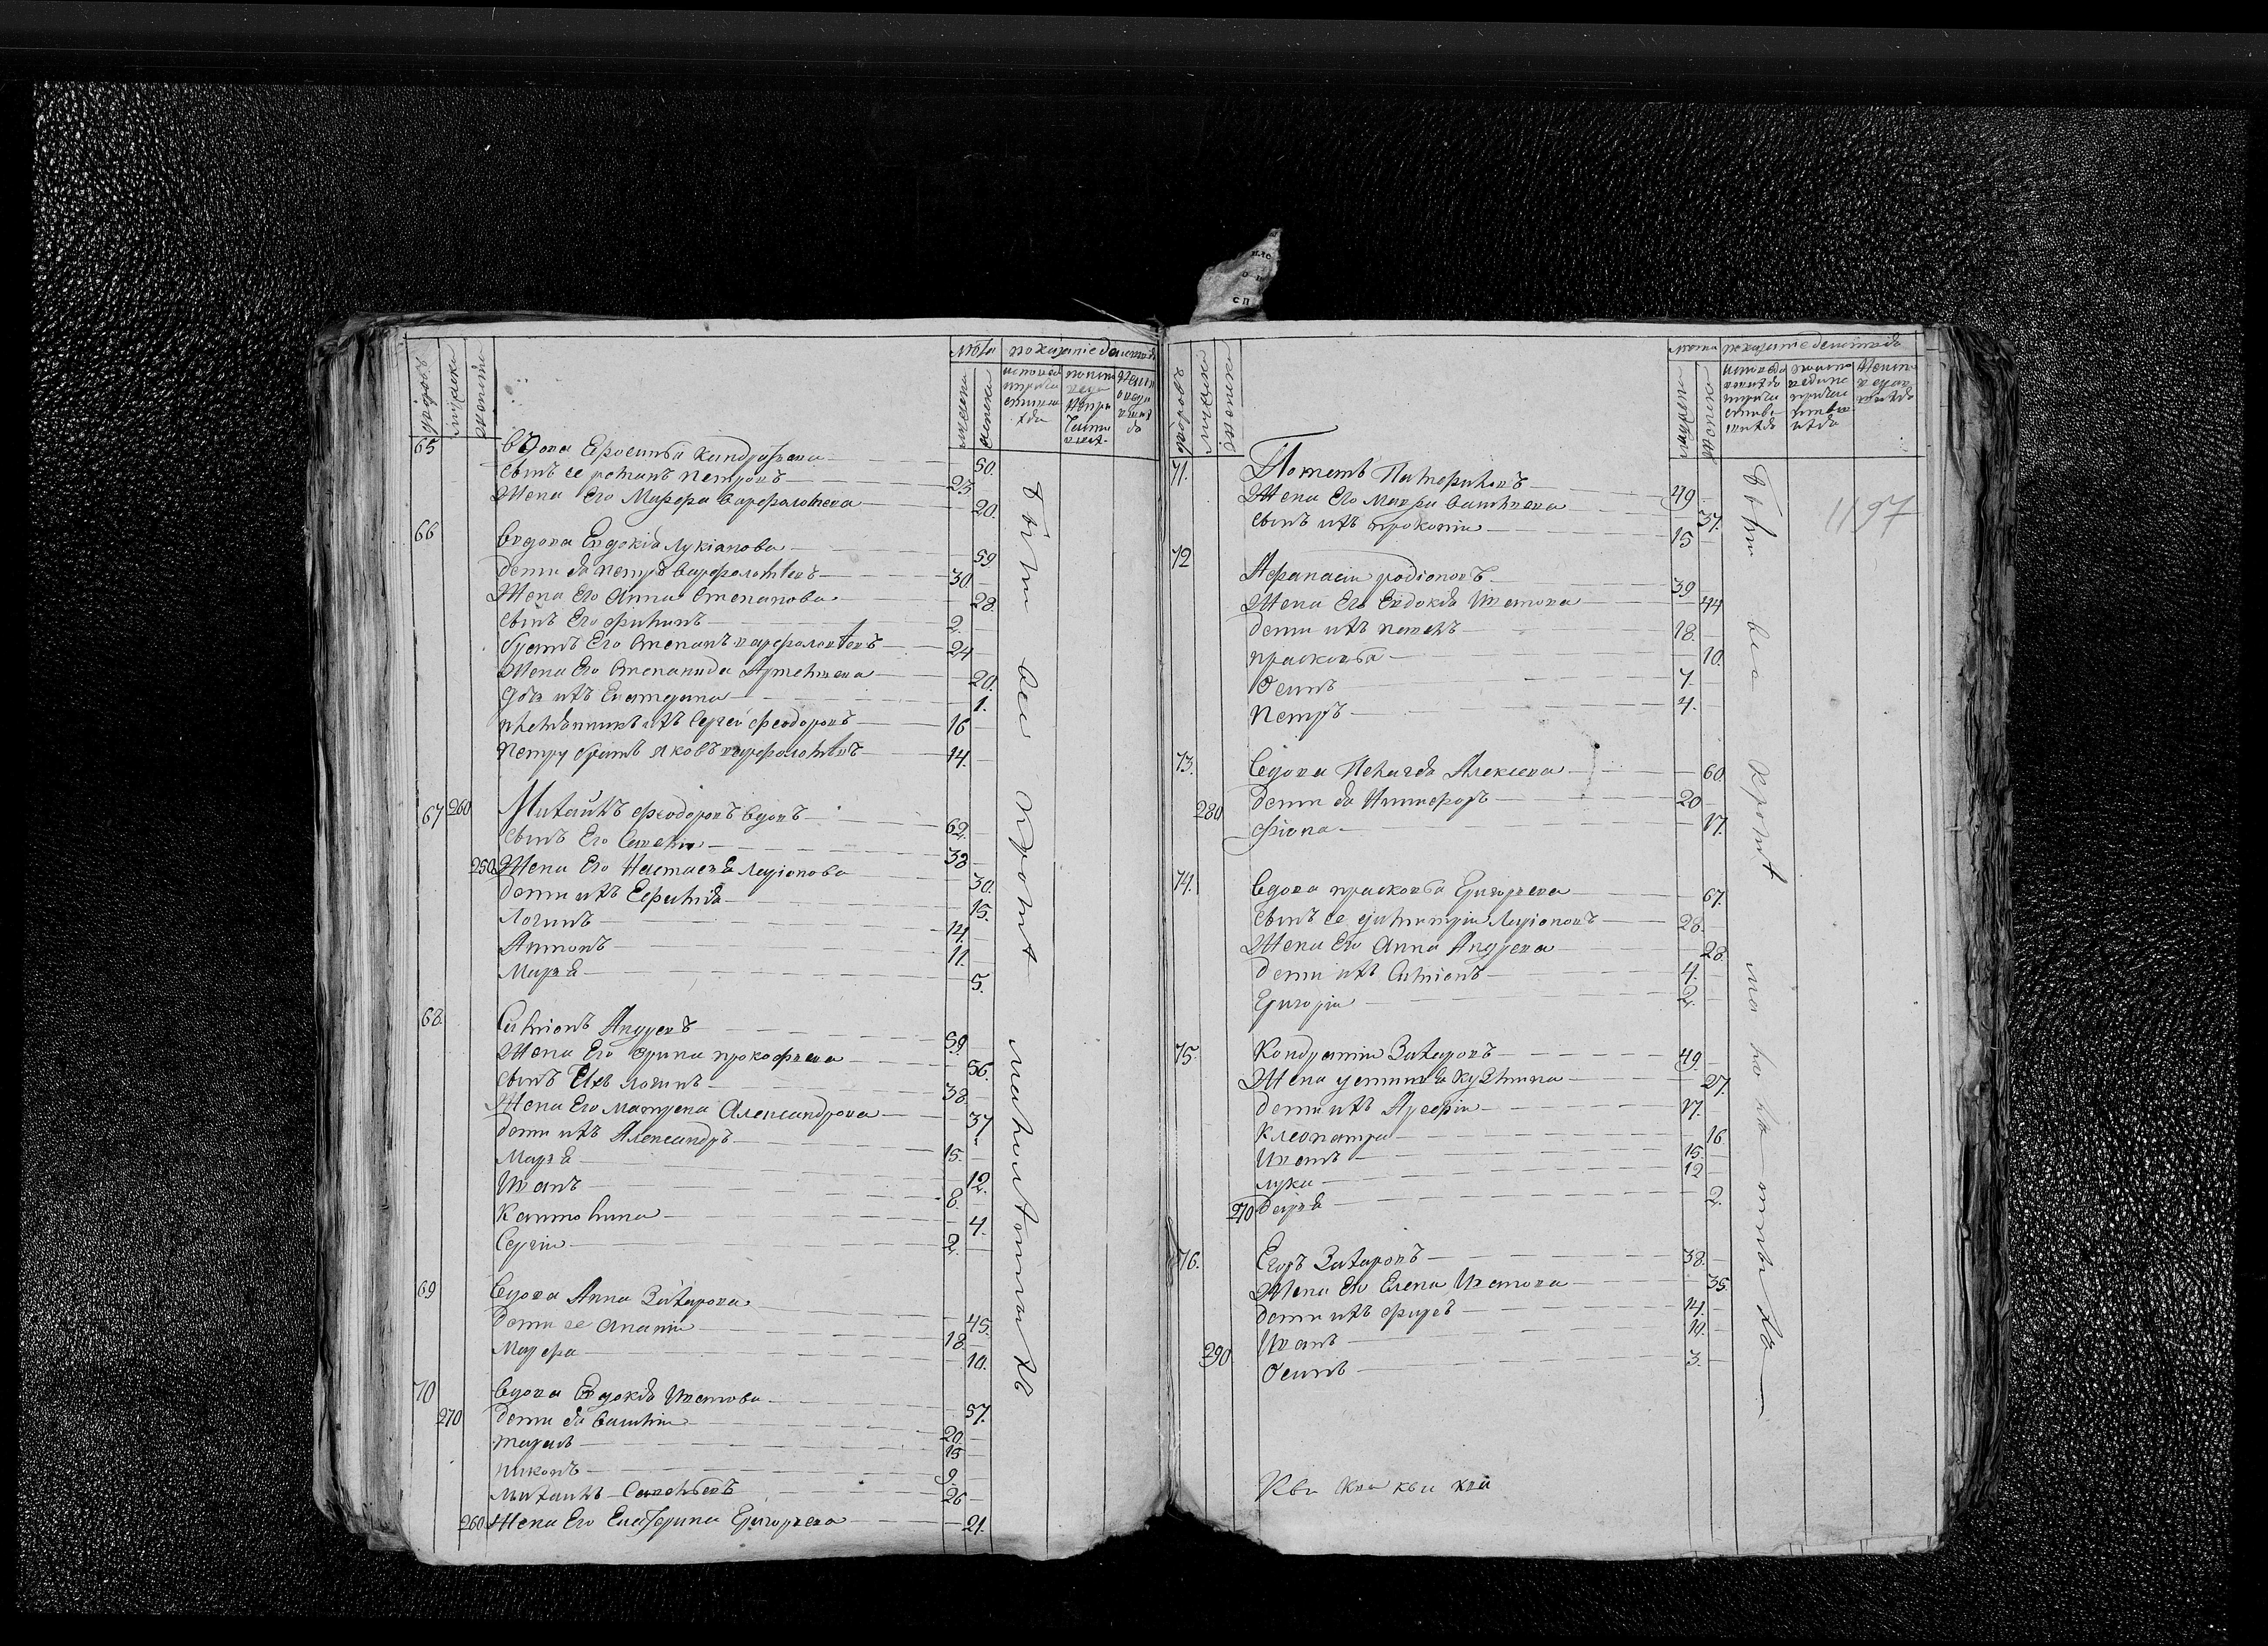 дворовъ
мужска
женска
лѣта
показание действа
мужска
женска
65
вдова Ефросинья Кондратьева 50.
сынъ ее романъ петровъ 23
Жена Его Марфа варфаломеева 20.
66
вдова Евдокія Лукіянова 59
дети ея петръ варфаломѣевъ 30
Жена Его Анна степанова 28.
сынъ Его филипъ 2.
братъ Его степанъ варфаломѣевъ 24
Жена Его степанида Артемьева 20.
дочь ихъ Екатерина 1.
племянникъ ихъ сергей феодоровъ 16
петру братъ яковъ варфаломѣевъ 14.
67 260 Михайлъ феодоровъ вдовъ 62.
сынъ Его савелій 38
250 Жена Его Настасья Ларіонова 30.
дети ихъ Ефимія 15.
Логинъ 14.
Антонъ 11.
Марья 5.
68.
Симіонъ Андреевъ 59.
Жена Его Ирина прокофьева 56.
сынъ Ихъ логинъ 38.
Жена Его матрена Александрова 37.
дети ихъ Александръ 15.
Марья 12.
Иванъ 8.
Капиталина 4.
Сергій 2.
69
вдова Анна Захарова 45.
дети ее Ананій 18.
Марфа 10.
70
вдова Евдокія Иванова 57.
270 дети ея василій 20
тарасъ 15
никонъ 9.
михайлъ савельевъ 26
260 Жена Его Екатерина Григорьева 21.
были вси кромѣ
дворовъ
мужска
женска
лѣта
показание действа
71.
Потапъ 49
Жена Его Мавра васильева 37.
сынъ ихъ прокопій 15
1197
72
Афанасій родіоновъ 39
Жена Его Евдокія Иванова 44
дети ихъ павелъ 18.
прасковья 10.
Осипъ 7.
Петръ 4.
73.
вдова Пелагея Алексеева 60
280 дети ея Никифоръ 20
фіона 17.
74.
вдова прасковья Григорьева 67.
сынъ ее димитрій Ларіоновъ 28.
Жена Его Анна Андреева 28.
дети ихъ Симіонъ 4.
Григорій 2.
75.
Кондратій Захаровъ 49.
Жена устинья Кузмина 27.
дети ихъ Арефій 17.
Клеопатра 16.
Иванъ 15.
лука 12
270 дарья 2.
76.
Егоръ Захаровъ 38.
Жена Его Елена Иванова 35.
дети ихъ фирсъ 14.
Иванъ 10.
290 Осипъ 3.
были вси кромѣ малолѣтныхъ